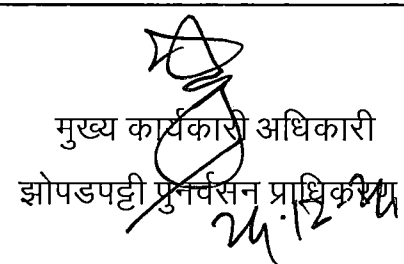 मुख्य कार्यकारी अधिकारी
झोपडपट्टी पुनर्वसन प्राधिकरण,